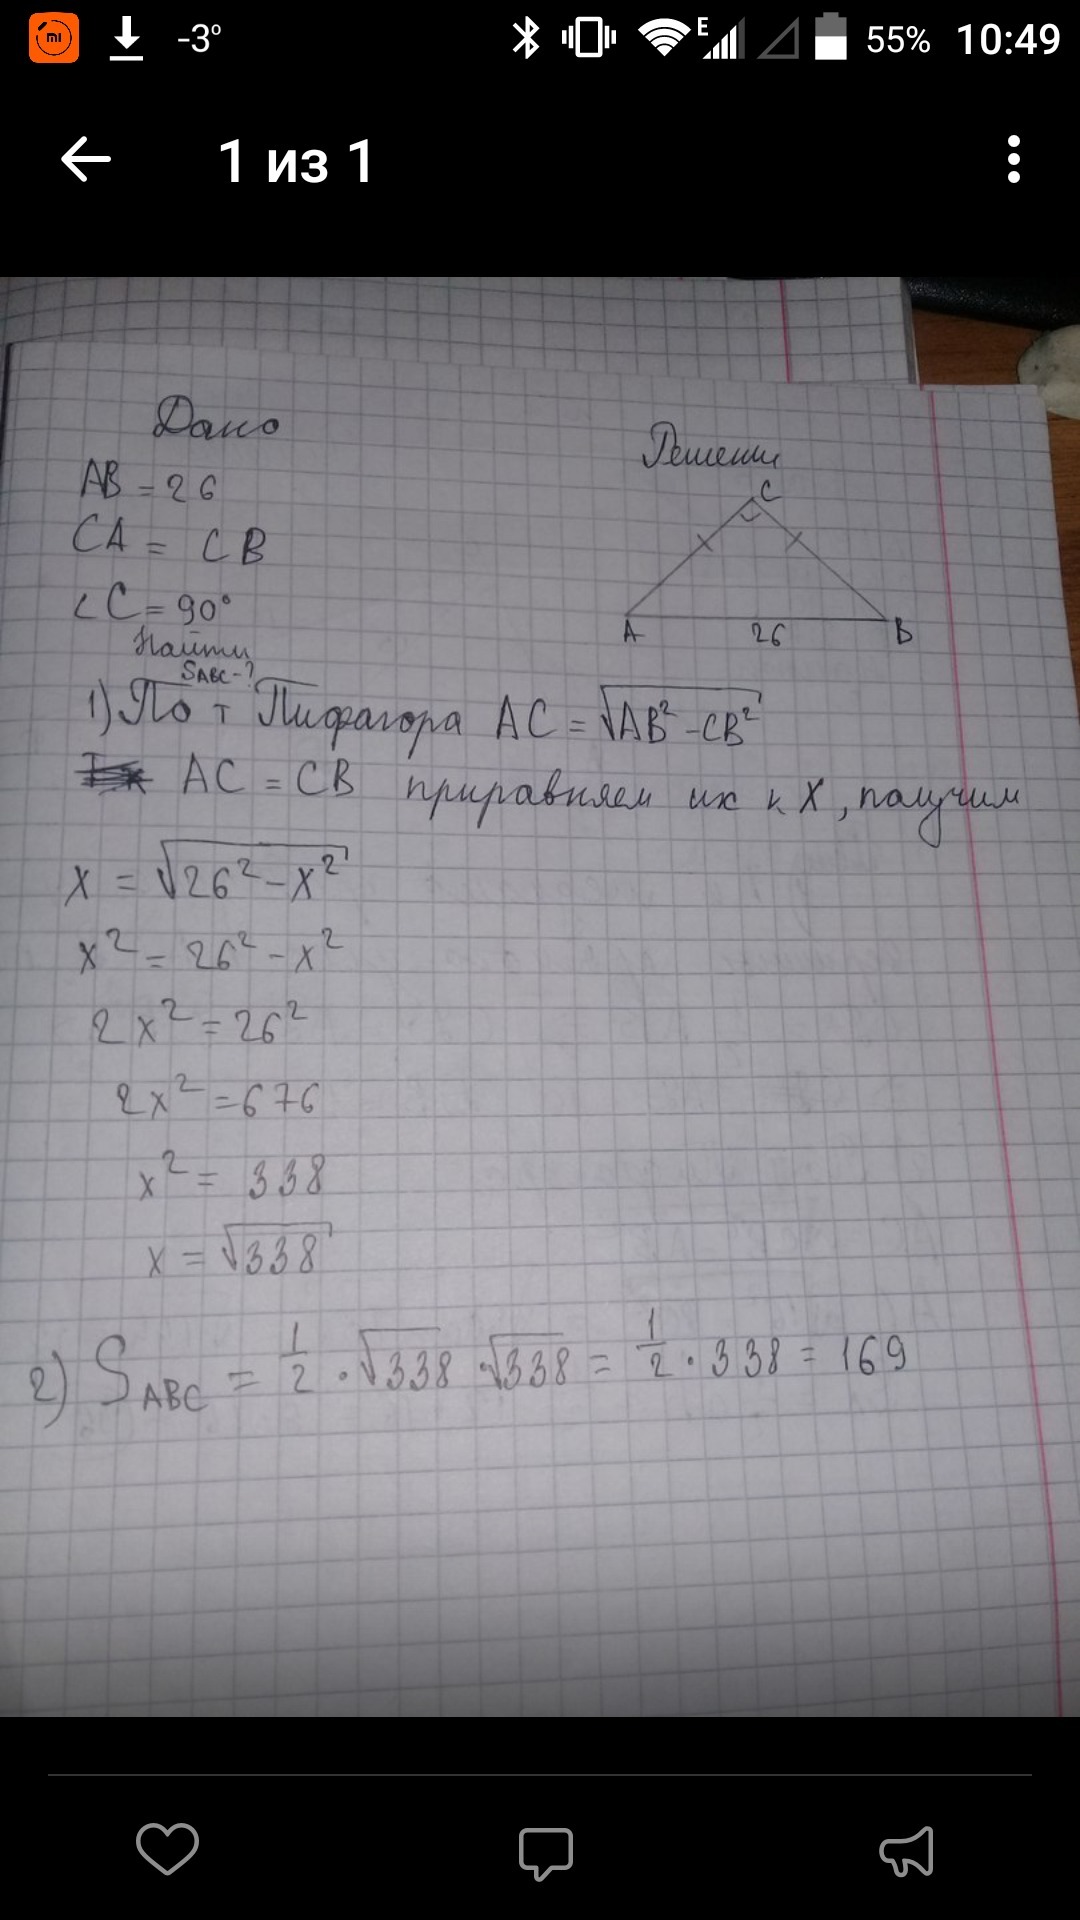 -3° E 55% 10:49
1 из 1
Дано
Решени
AB = 26
CA = CB
∠C = 90°
Найти
SABC - ?
C
A 26 B
1) По т Пифагора AC = √AB² - CB²
AC = CB приравняем их к X, получим
x = √26² - x²
x² = 26² - x²
2x² = 26²
2x² = 676
x² = 338
x = √338
2) SABC = 1/2 · √338 · √338 = 1/2 · 338 = 169